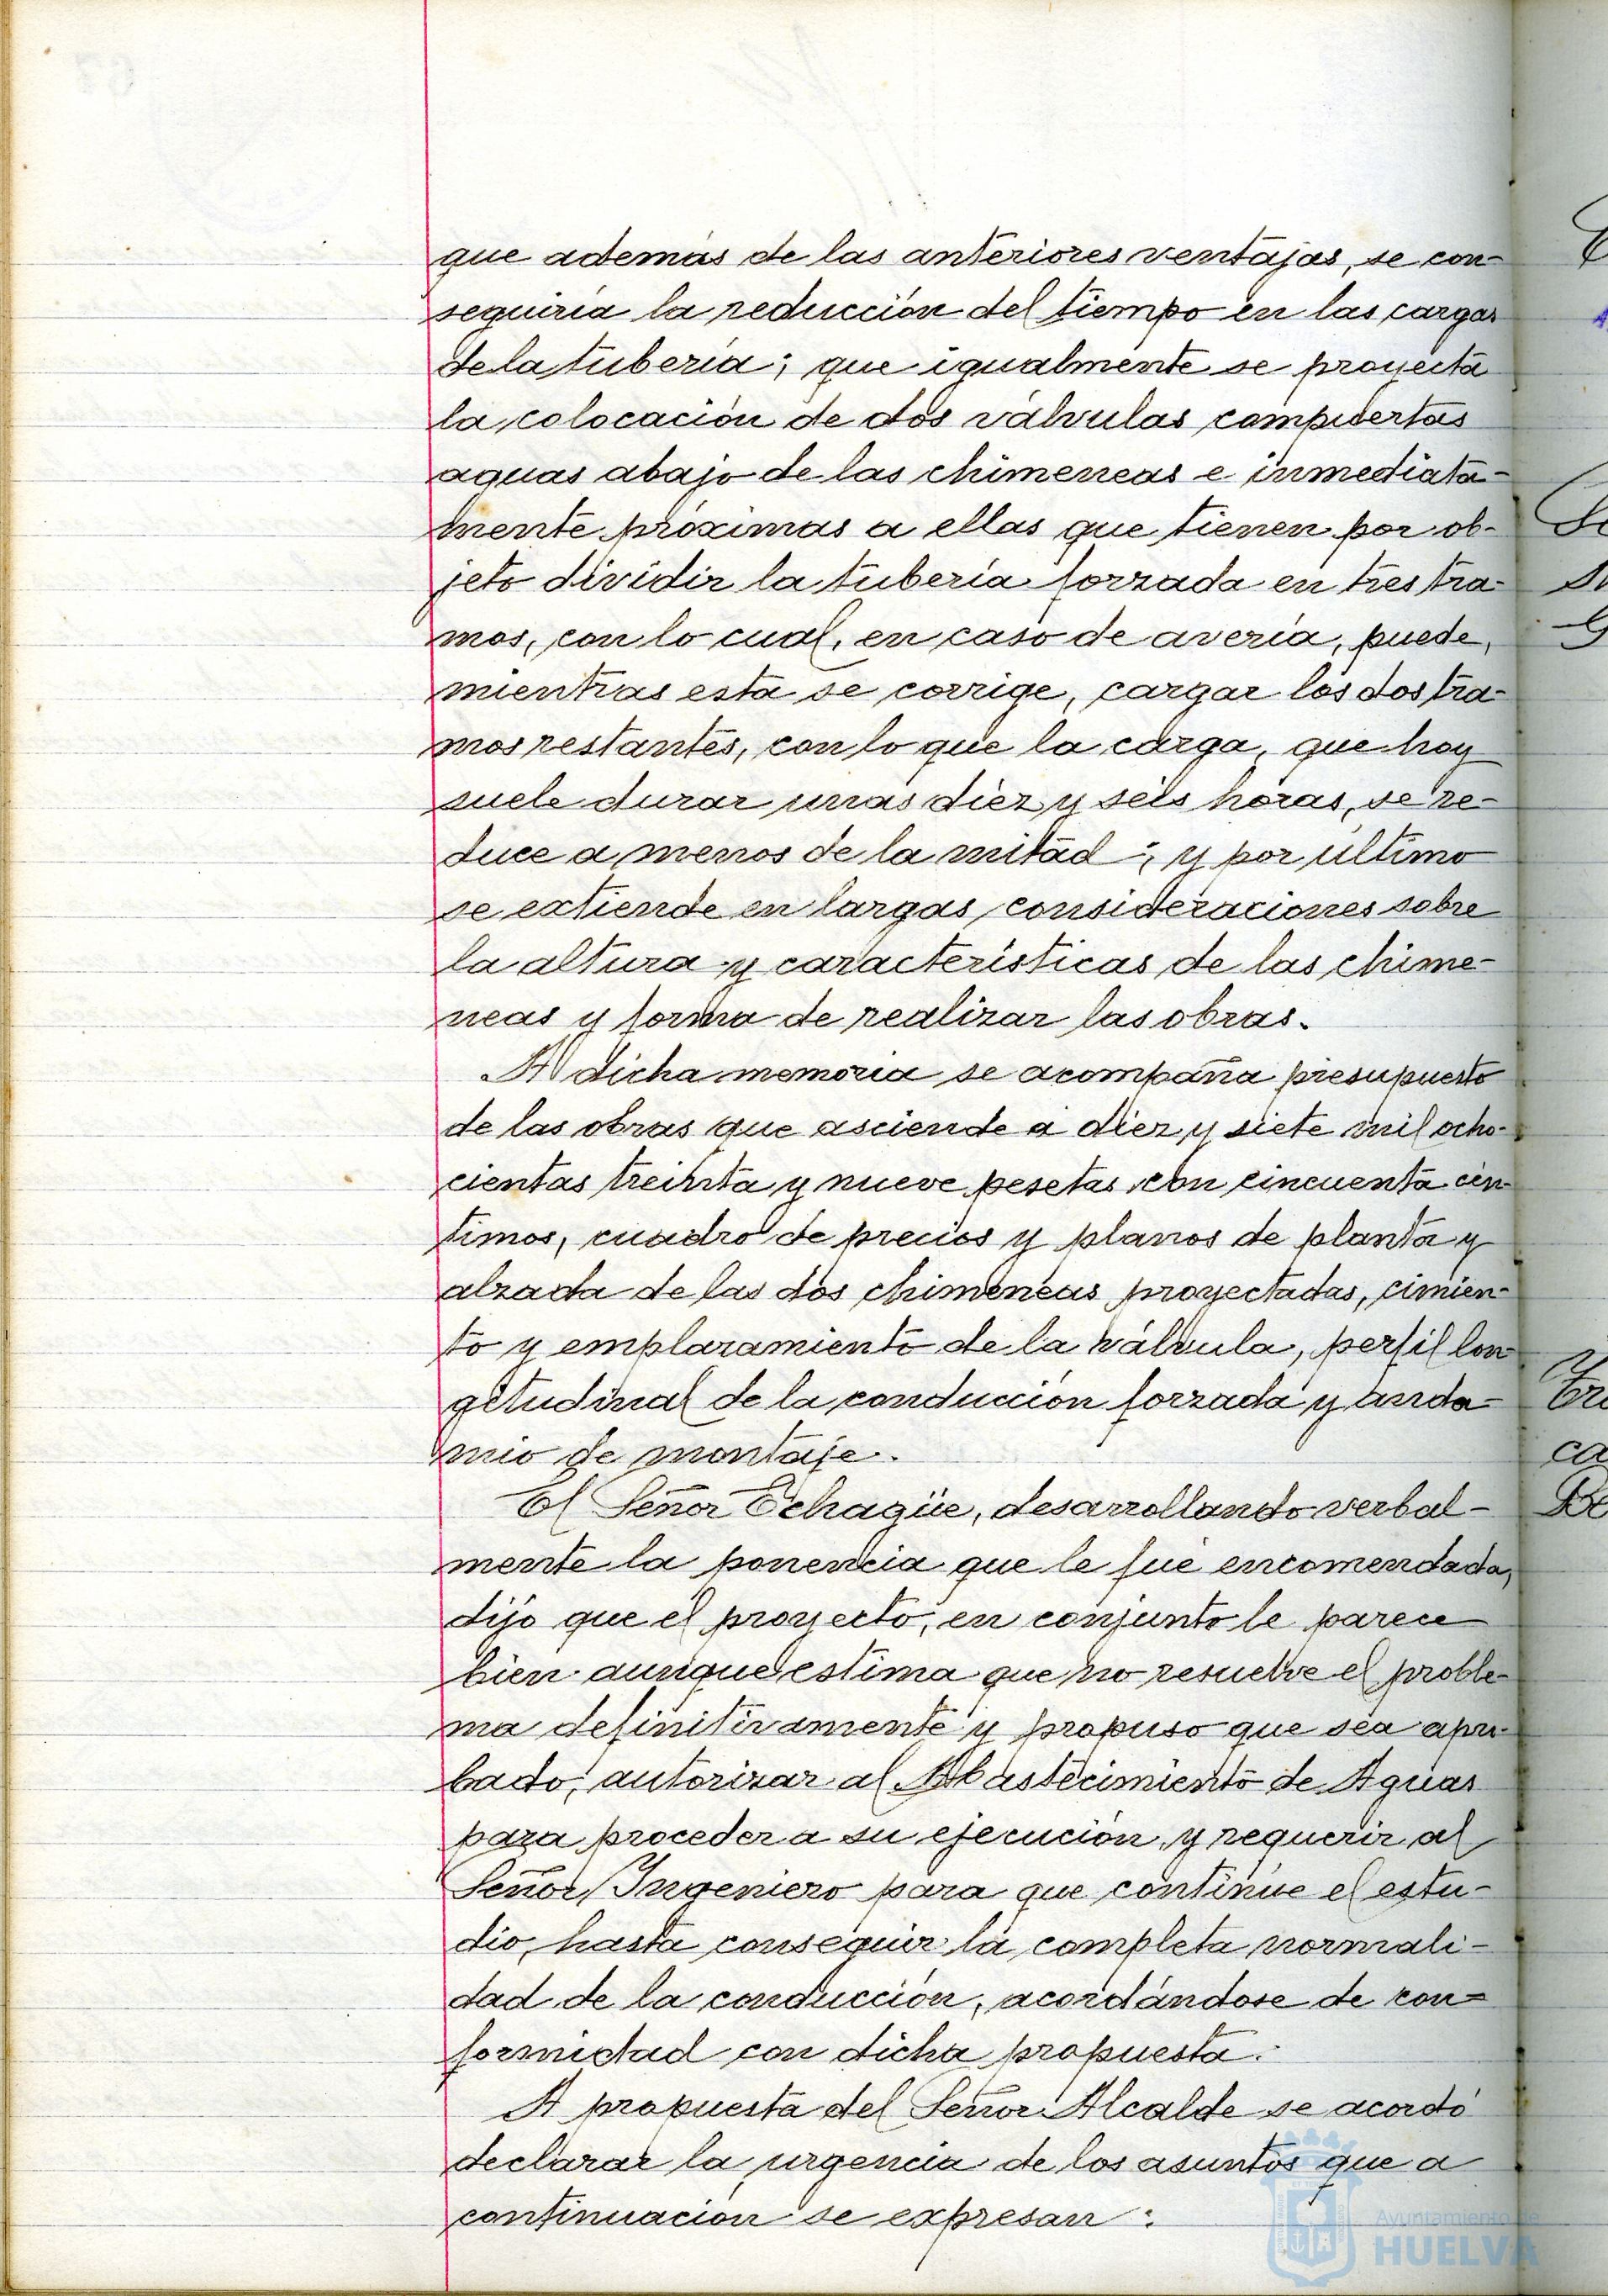 que además de las anteriores ventajas, se con-
seguiría la reducción del tiempo en las cargas
de la tubería; que igualmente se proyecta
la colocación de dos válvulas compuertas
aguas abajo de las chimeneas e inmediata-
mente próximas a ellas que tienen por ob-
jeto dividir la tubería forzada en tres tra-
mos, con lo cual, en caso de avería, puede,
mientras esta se corrige, cargar los dos tra-
mos restantes, con lo que la carga, que hoy
suele durar unas diez y seis horas, se re-
duce a menos de la mitad; y por último
se extiende en largas consideraciones sobre
la altura y características de las chime-
neas y forma de realizar las obras.
A dicha memoria se acompaña presupuesto
de las obras que asciende a diez y siete mil ocho-
cientas treinta y nueve pesetas con cincuenta cén-
timos, cuadro de precios y planos de planta y
alzada de las dos chimeneas proyectadas, cimien-
to y emplazamiento de la válvula, perfil lon-
gitudinal de la conducción forzada y anda-
mio de montaje.
El Señor Echagüe, desarrollando verbal-
mente la ponencia que le fue encomendada,
dijo que el proyecto, en conjunto le parece
bien aunque estima que no resuelve el proble-
ma definitivamente y propuso que sea apro-
bado, autorizar al Abastecimiento de Aguas
para proceder a su ejecución, y requerir al
Señor Ingeniero para que continúe el estu-
dio, hasta conseguir la completa normali-
dad de la conducción, acordándose de con-
formidad con dicha propuesta.
A propuesta del Señor Alcalde se acordó
declarar la urgencia de los asuntos que a
continuación se expresan:
Ayuntamiento de
HUELVA